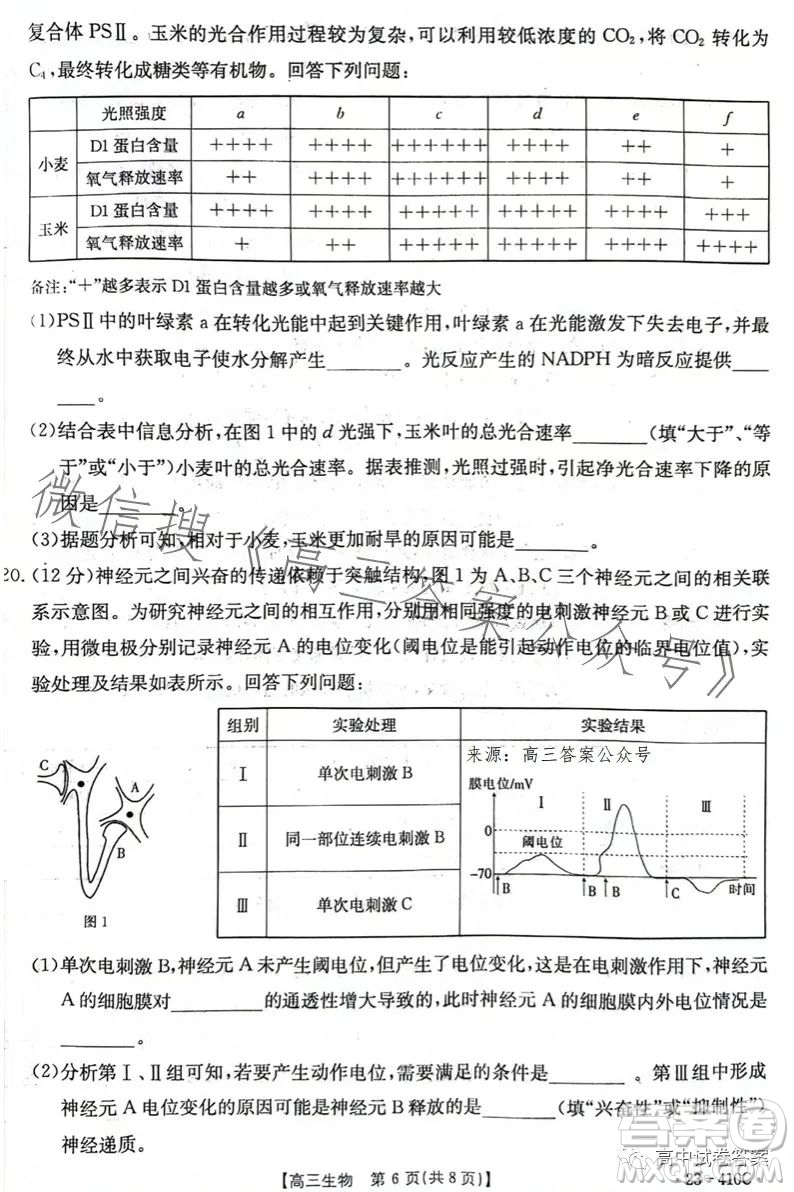 复合体 PSⅡ。玉米的光合作用过程较为复杂,可以利用较低浓度的 CO₂,将 CO₂ 转化为
C₄,最终转化成糖类等有机物。回答下列问题:
光照强度 a b c d e f
小麦 D1 蛋白含量 ++++ +++++ ++++++ ++++ ++ +
氧气释放速率 ++ ++++ ++++++ ++++ ++ +
玉米 D1 蛋白含量 ++++ ++++ +++++ +++++ ++++ +++
氧气释放速率 + ++ ++++ +++++ +++++ ++++
备注:“+”越多表示 D1 蛋白含量越多或氧气释放速率越大
(1)PSⅡ中的叶绿素 a 在转化光能中起到关键作用,叶绿素 a 在光能激发下失去电子,并最
终从水中获取电子使水分解产生______。光反应产生的 NADPH 为暗反应提供___
___。
(2)结合表中信息分析,在图 1 中的 d 光强下,玉米叶的总光合速率______(填“大于”、“等
于”或“小于”)小麦叶的总光合速率。据表推测,光照过强时,引起净光合速率下降的原
因是______。
(3)据题分析可知,相对于小麦,玉米更加耐旱的原因可能是______。
20.(12 分)神经元之间兴奋的传递依赖于突触结构,图 1 为 A、B、C 三个神经元之间的相关联
系示意图。为研究神经元之间的相互作用,分别用相同强度的电刺激神经元 B 或 C 进行实
验,用微电极分别记录神经元 A 的电位变化(阈电位是能引起动作电位的临界电位值),实
验处理及结果如表所示。回答下列问题:
组别 实验处理 实验结果
Ⅰ 单次电刺激 B
Ⅱ 同一部位连续电刺激 B
Ⅲ 单次电刺激 C
来源:高三答案公众号
膜电位/mV Ⅰ Ⅱ Ⅲ
0
阈电位
-70
B B B C 时间
C A B
图 1
(1)单次电刺激 B,神经元 A 未产生阈电位,但产生了电位变化,这是在电刺激作用下,神经元
A 的细胞膜对______的通透性增大导致的,此时神经元 A 的细胞膜内外电位情况是
______。
(2)分析第Ⅰ、Ⅱ组可知,若要产生动作电位,需要满足的条件是______。第Ⅲ组中形成
神经元 A 电位变化的原因可能是神经元 B 释放的是______(填“兴奋性”或“抑制性”)
神经递质。
【高三生物 第 6 页(共 8 页)】
·23-410C·
微信搜《高三答案公众号》
高中试卷答案